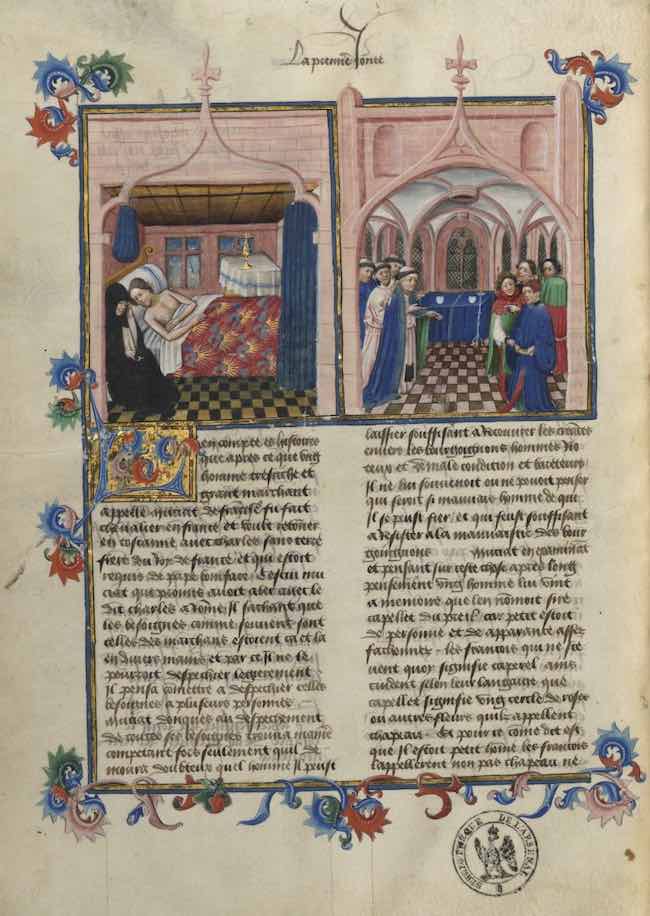 La premiere Jonee
en compte es histoires
que apres ce que vng
homme tresriche et
grant marchant
appelle muciat de france fu fait
cheualier en france et voult retorner
en toscanne auec charles sans terre
frere du roy de france et qui estoit
requis de pape boniface. Cestui mu
ciat que promis auoit aler auec le
dit charles a rome Il sachant que
les besoignes comme souuent sont
celles des marchans estoient ca et la
en diuers mains et par ce Il ne le
pourroit despechier legierement
Il pensa cometre a despechier celles
besoignes a pluseurs personnes
Muciat donques au despechement
de toutes ses besoignes trouua maniere
competant fors seulement quil de
moura doubteux quel homme Il peust
laissier souffisant a recouurer les creances
enuers les bourguignons hommes Rio
teux et de male condition et barateurs
Il ne lui souuenoit ou ne pouoit penser
qui seroit si mauuais homme de qui
Il se peust fier et qui feust souffisant
a resister a la mauuaistie des bour
guignons Muciat examinant
et pensant sur ceste chose apres long
pensement vng homme lui vint
a memoire que len nomoit sire
capellet du prat Il car petit estoit
de personne et de apparance assez
fachonnez. les francois qui ne sce
uent quoy signifie caperel ains
cuident selon leur langaige que
capellet signifie vng cercle de roses
ou autres fleurs quilz appellent
chapeau. Et pour ce come dit est
que Il estoit petit home les francois
lappellerent non pas chapeau ne
BIBLIOTHEQUE DE L'ARSENAL